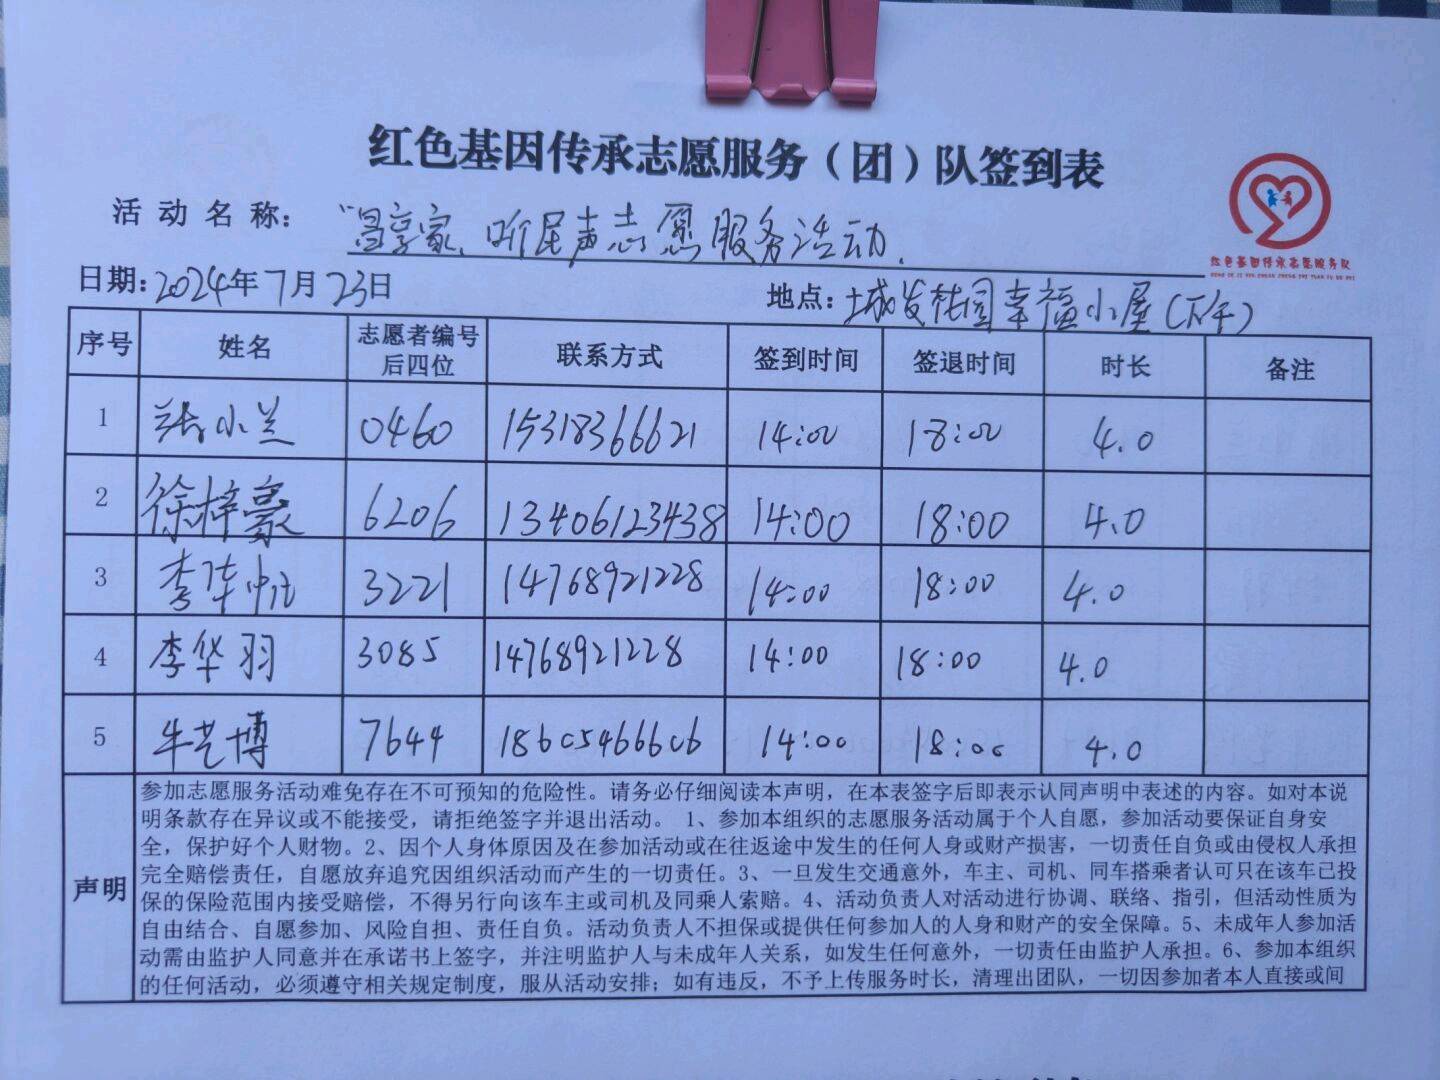 红色基因传承志愿服务（团）队签到表
活动名称： 享家、听民声志愿服务活动.
红色基因传承志愿服务队
日期：2024年7月23日 地点： 城发花园幸福小屋(下午)
序号 姓名 志愿者编号后四位 联系方式 签到时间 签退时间 时长 备注
1 张小兰 0460 15318366621 14:00 18:00 4.0
2 徐梓豪 6206 13406123438 14:00 18:00 4.0
3 李华帆 3221 14768921228 14:00 18:00 4.0
4 李华羽 3085 14768921228 14:00 18:00 4.0
5 牛艺博 7644 18605466606 14:00 18:00 4.0
声明
参加志愿服务活动难免存在不可预知的危险性。请务必仔细阅读本声明，在本表签字后即表示认同声明中表述的内容。如对本说
明条款存在异议或不能接受，请拒绝签字并退出活动。 1、参加本组织的志愿服务活动属于个人自愿，参加活动要保证自身安
全，保护好个人财物。2、因个人身体原因及在参加活动或在往返途中发生的任何人身或财产损害，一切责任自负或由侵权人承担
完全赔偿责任，自愿放弃追究因组织活动而产生的一切责任。3、一旦发生交通意外，车主、司机、同车搭乘者认可只在该车已投
保的保险范围内接受赔偿，不得另行向该车主或司机及同乘人索赔。4、活动负责人对活动进行协调、联络、指引，但活动性质为
自由结合、自愿参加、风险自担、责任自负。活动负责人不担保或提供任何参加人的人身和财产的安全保障。5、未成年人参加活
动需由监护人同意并在承诺书上签字，并注明监护人与未成年人关系，如发生任何意外，一切责任由监护人承担。6、参加本组织
的任何活动，必须遵守相关规定制度，服从活动安排；如有违反，不予上传服务时长，清理出团队，一切因参加者本人直接或间